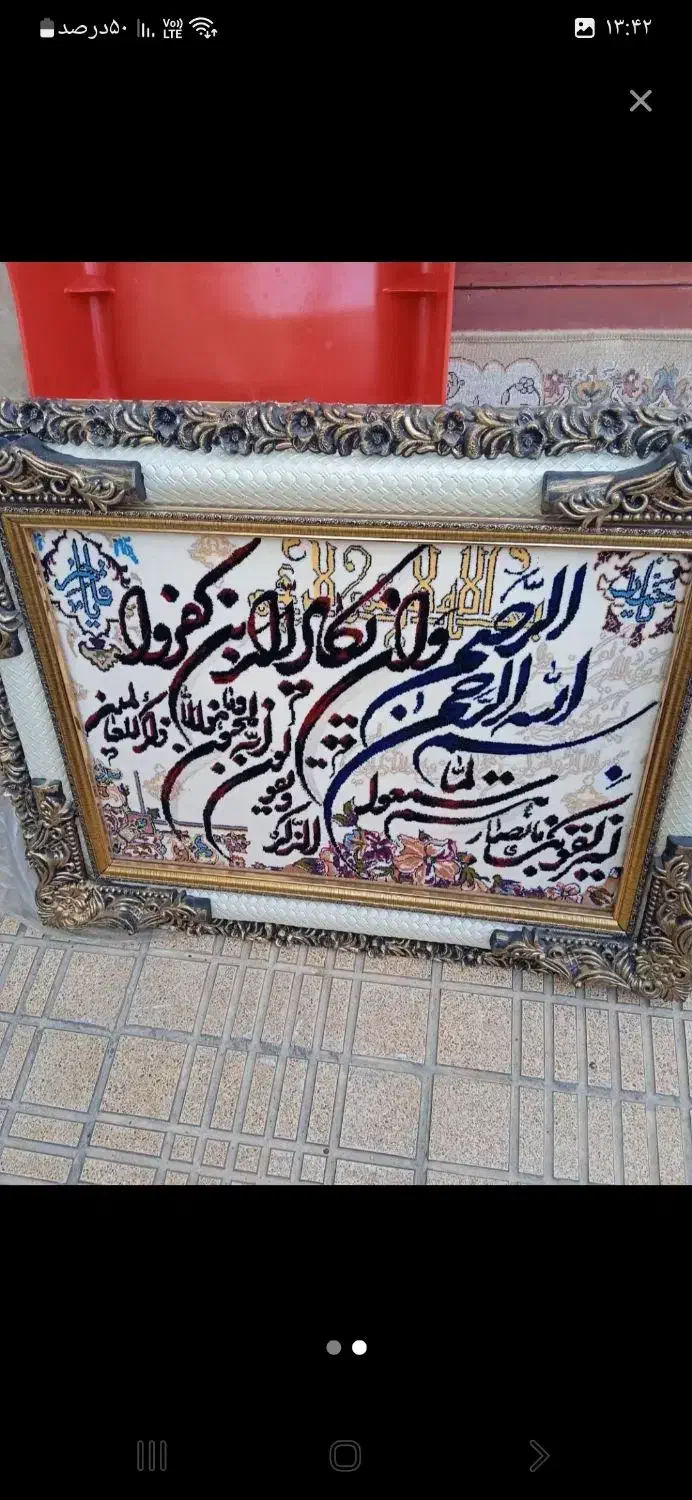 ۵۰درصد
Vo)) LTE
۱۳:۴۲
بسم الله الرحمن الرحیم
وان یکاد الذین کفروا
لیزلقونک بابصارهم
لما سمعوا
الذکر
و یقولون
انه لمجنون
وما هو الا
ذکر للعالمین